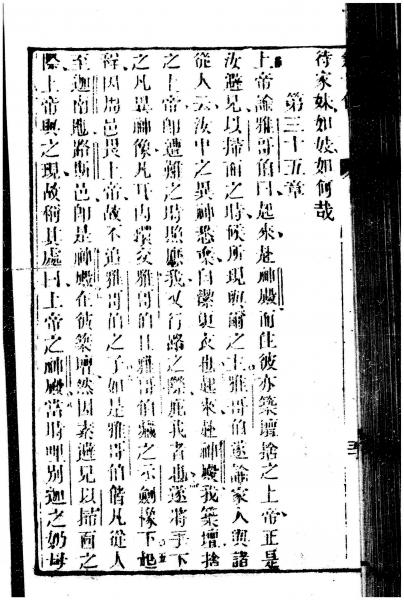 待家妹如妓如何哉
第三十五章
上帝諭雅哥伯曰起來赴神殿而住彼亦築壇捨之上帝正是
汝避兄以掃面之時候所現與爾之主雅哥伯遂諭家人與諸
從人云汝中之異神悉棄自潔更衣也起來赴神殿我築壇捨
之上帝卽遭難之時照應我又行路之際庇我者也遂將手下
之凡異神像凡耳內環交雅哥伯且雅哥伯藏之示劍橡下也
程因周邑畏上帝故不追雅哥伯之子如是雅哥伯偕凡從人
至迦南地路斯邑卽是神殿在彼築壇然因素避兄以掃面之
際上帝與之現故稱其處曰上帝之神殿當時哩別迦之奶母